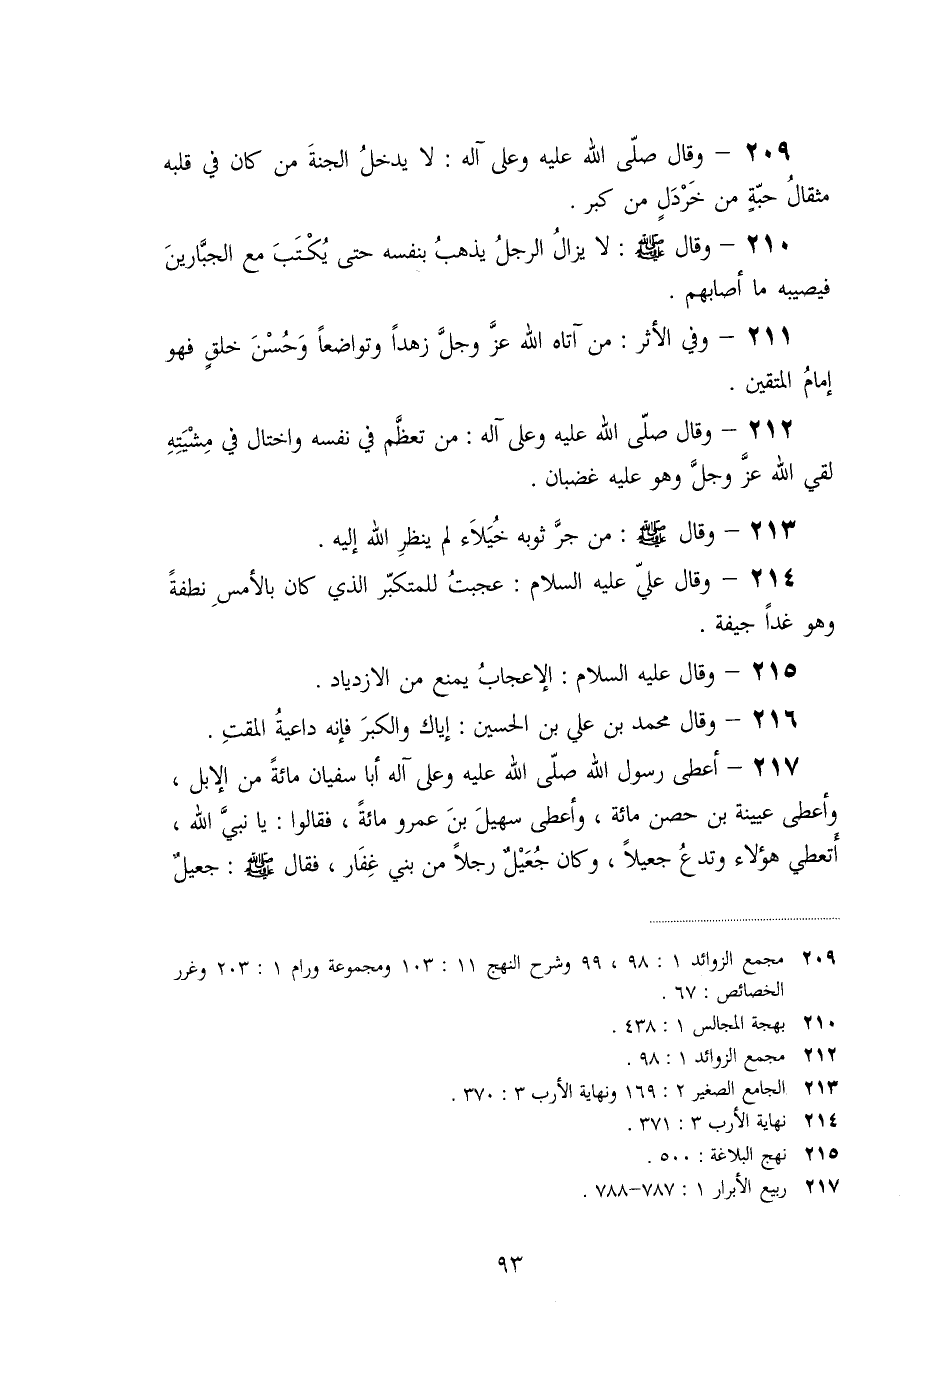 ٢٠٩ – وقال صلّى الله عليه وعلى آله : لا يدخلُ الجنةَ من كان في قلبه
مثقالُ حبّةٍ من خَرْدَلٍ من كبر .
٢١٠ – وقال ﷺ : لا يزالُ الرجلُ يذهبُ بنفسه حتى يُكْتَبَ مع الجبَّارينَ
فيصيبه ما أصابهم .
٢١١ – وفي الأثر : من آتاه الله عزَّ وجلَّ زهداً وتواضعاً وَحُسْنَ خلقٍ فهو
إمامُ المتقين .
٢١٢ – وقال صلّى الله عليه وعلى آله : من تعظَّم في نفسه واختال في مِشْيَتِهِ
لقي الله عزَّ وجلَّ وهو عليه غضبان .
٢١٣ – وقال ﷺ : من جرَّ ثوبه خُيَلاَء لم ينظرِ الله إليه .
٢١٤ – وقال عليّ عليه السلام : عجبتُ للمتكبّر الذي كان بالأمسِ نطفةً
وهو غداً جيفة .
٢١٥ – وقال عليه السلام : الإعجابُ يمنع من الازدياد .
٢١٦ – وقال محمد بن علي بن الحسين : إياك والكبرَ فإنه داعيةُ المقتِ .
٢١٧ – أعطى رسول الله صلّى الله عليه وعلى آله أبا سفيان مائةً من الإبل ،
وأعطى عيينة بن حصن مائة ، وأعطى سهيلَ بنَ عمرو مائةً ، فقالوا : يا نبيَّ الله ،
أَتعطي هؤلاء وتدعُ جعيلاً ، وكان جُعَيْلٌ رجلاً من بني غِفَار ، فقال ﷺ : جعيلٌ
٢٠٩ مجمع الزوائد ١ : ٩٨ ، ٩٩ وشرح النهج ١١ : ١٠٣ ومجموعة ورام ١ : ٢٠٣ وغرر
الخصائص : ٦٧ .
٢١٠ بهجة المجالس ١ : ٤٣٨ .
٢١٢ مجمع الزوائد ١ : ٩٨ .
٢١٣ الجامع الصغير ٢ : ١٦٩ ونهاية الأرب ٣ : ٣٧٠ .
٢١٤ نهاية الأرب ٣ : ٣٧١ .
٢١٥ نهج البلاغة : ٥٠٠ .
٢١٧ ربيع الأبرار ١ : ٧٨٧–٧٨٨ .
٩٣